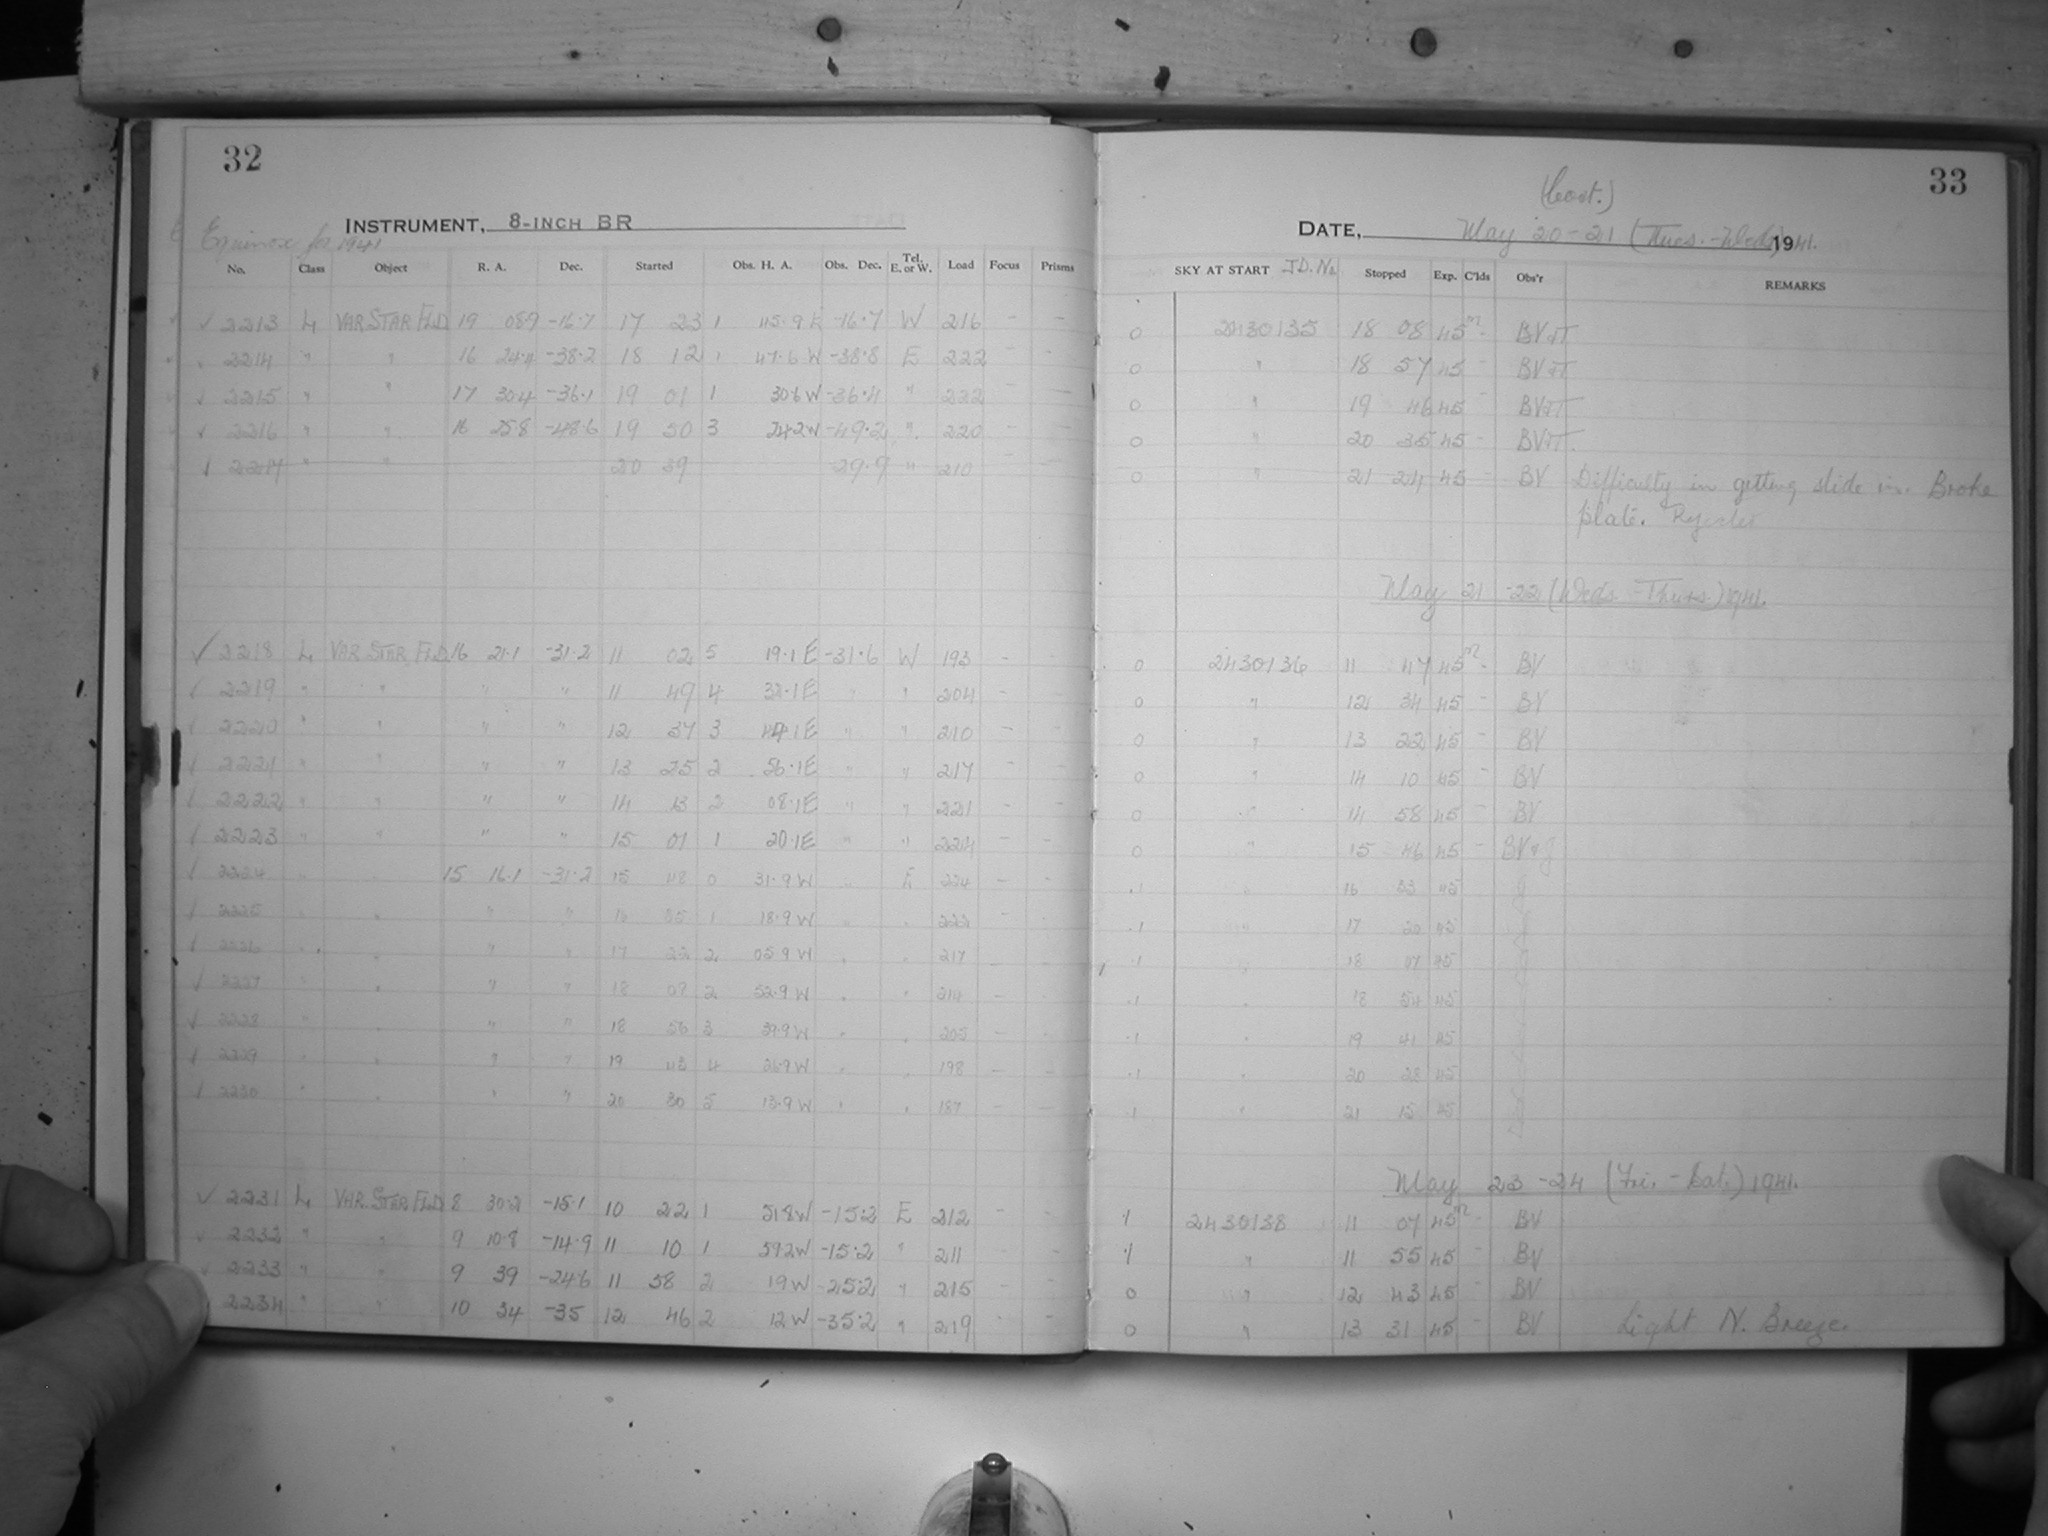 32
INSTRUMENT, 8-INCH BR
Equinox for 1941
No. Class Object R. A. Dec. Started Obs. H. A. Obs. Dec. Tel. E. or W. Load Focus Prisms
✓ 2213 L VAR STAR FLD 19 08.9 -16.7 17 23 1 45.9 E -16.7 W 216 - -
2214 " " 16 24.4 -38.2 18 12 1 47.6 W -38.8 E 222 - -
2215 " " 17 30.4 -36.1 19 01 1 30.6 W -36.4 " 222 - -
2216 " " 16 25.8 -48.6 19 50 3 24.2 W -49.2 " 220 - -
2217 " " 20 39 29.9 " 210 - -
✓ 2218 L VAR STAR FLD 16 21.1 -31.2 11 02 5 19.1 E -31.6 W 193 - -
2219 " " " " 11 49 4 32.1 E " " 204 - -
2220 " " " " 12 37 3 44.1 E " " 210 - -
2221 " " " " 13 25 2 56.1 E " " 217 - -
2222 " " " " 14 13 2 08.1 E " " 221 - -
2223 " " " " 15 01 1 20.1 E " " 224 - -
2224 " " 15 16.1 -31.2 15 48 0 31.9 W " E 224 - -
2225 " " " " 16 35 1 18.9 W " " 222 - -
2226 " " " " 17 22 2 05.9 W " " 217 - -
2227 " " " " 18 09 2 52.9 W " " 214 - -
2228 " " " " 18 56 3 39.9 W " " 205 - -
2229 " " " " 19 43 4 26.9 W " " 198 - -
2230 " " " " 20 30 5 13.9 W " " 187 - -
✓ 2231 L VAR. STAR FLD 8 30.2 -15.1 10 22 1 51.8 W -15.2 E 212 - -
2232 " " 9 10.8 -14.9 11 10 1 59.2 W -15.2 " 211 - -
2233 " " 9 39 -24.6 11 58 2 19 W -25.2 " 215 - -
2234 " " 10 34 -35 12 46 2 12 W -35.2 " 219 - -
33
(Cont.)
DATE, May 20-21 (Tues.-Weds) 1941.
SKY AT START J.D. No. Stopped Exp. C'lds Obs'r REMARKS
0 2430135 18 08 45m - BVJT
0 " 18 57 45 - BVJT
0 " 19 46 45 - BVJT
0 " 20 35 45 - BVJT.
0 " 21 24 45 - BV Difficulty in getting slide in. Broke
plate.
May 21-22 (Weds-Thurs.) 1941.
0 2430136 11 47 45m - BV
0 " 12 34 45 - BV
0 " 13 22 45 - BV
0 " 14 10 45 - BV
0 " 14 58 45 - BV
0 " 15 46 45 - BV & J
.1 " 16 33 45 J
.1 " 17 20 45
.1 " 18 07 45
.1 " 18 54 45
.1 " 19 41 45
.1 " 20 28 45
.1 " 21 15 45
May 23-24 (Fri.-Sat.) 1941.
.1 2430138 11 07 45m - BV
.1 " 11 55 45 - BV
0 " 12 43 45 - BV
0 " 13 31 45 - BV Light N. Breeze.